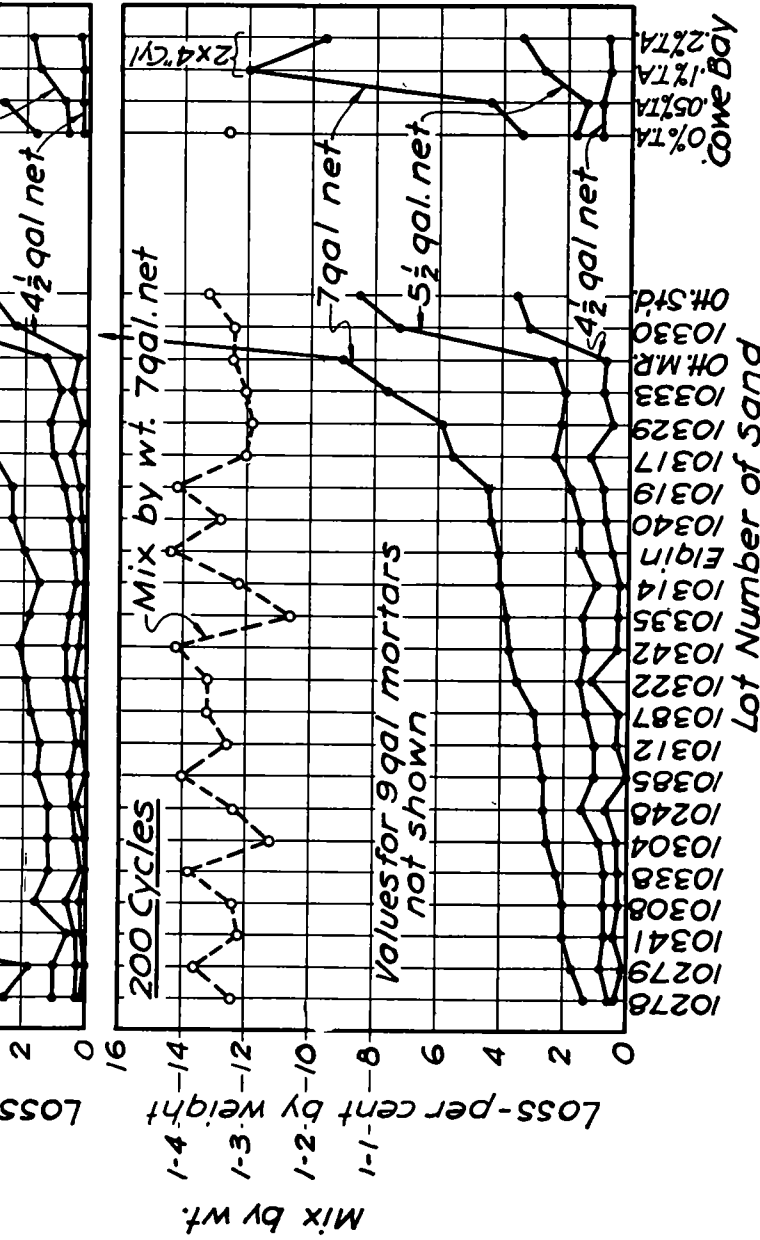 LOSS
2
0
4½ gal net
200 Cycles
Mix by wt. 7gal. net
Values for 9 gal mortars
not shown
7gal net
5½ gal. net
4½ gal net
2x4" Cyl
Mix by wt.
1-4
1-3
1-2
1-1
Loss-per cent by weight
16
14
12
10
8
6
4
2
0
10278
10279
10341
10308
10338
10304
10248
10385
10312
10387
10322
10342
10335
10314
Elgin
10340
10319
10317
10329
10333
Ott. M.R.
10330
Ott. Std.
0% T.A.
.05% T.A.
.1% T.A.
.2% T.A.
Cowe Bay
Lot Number of Sand